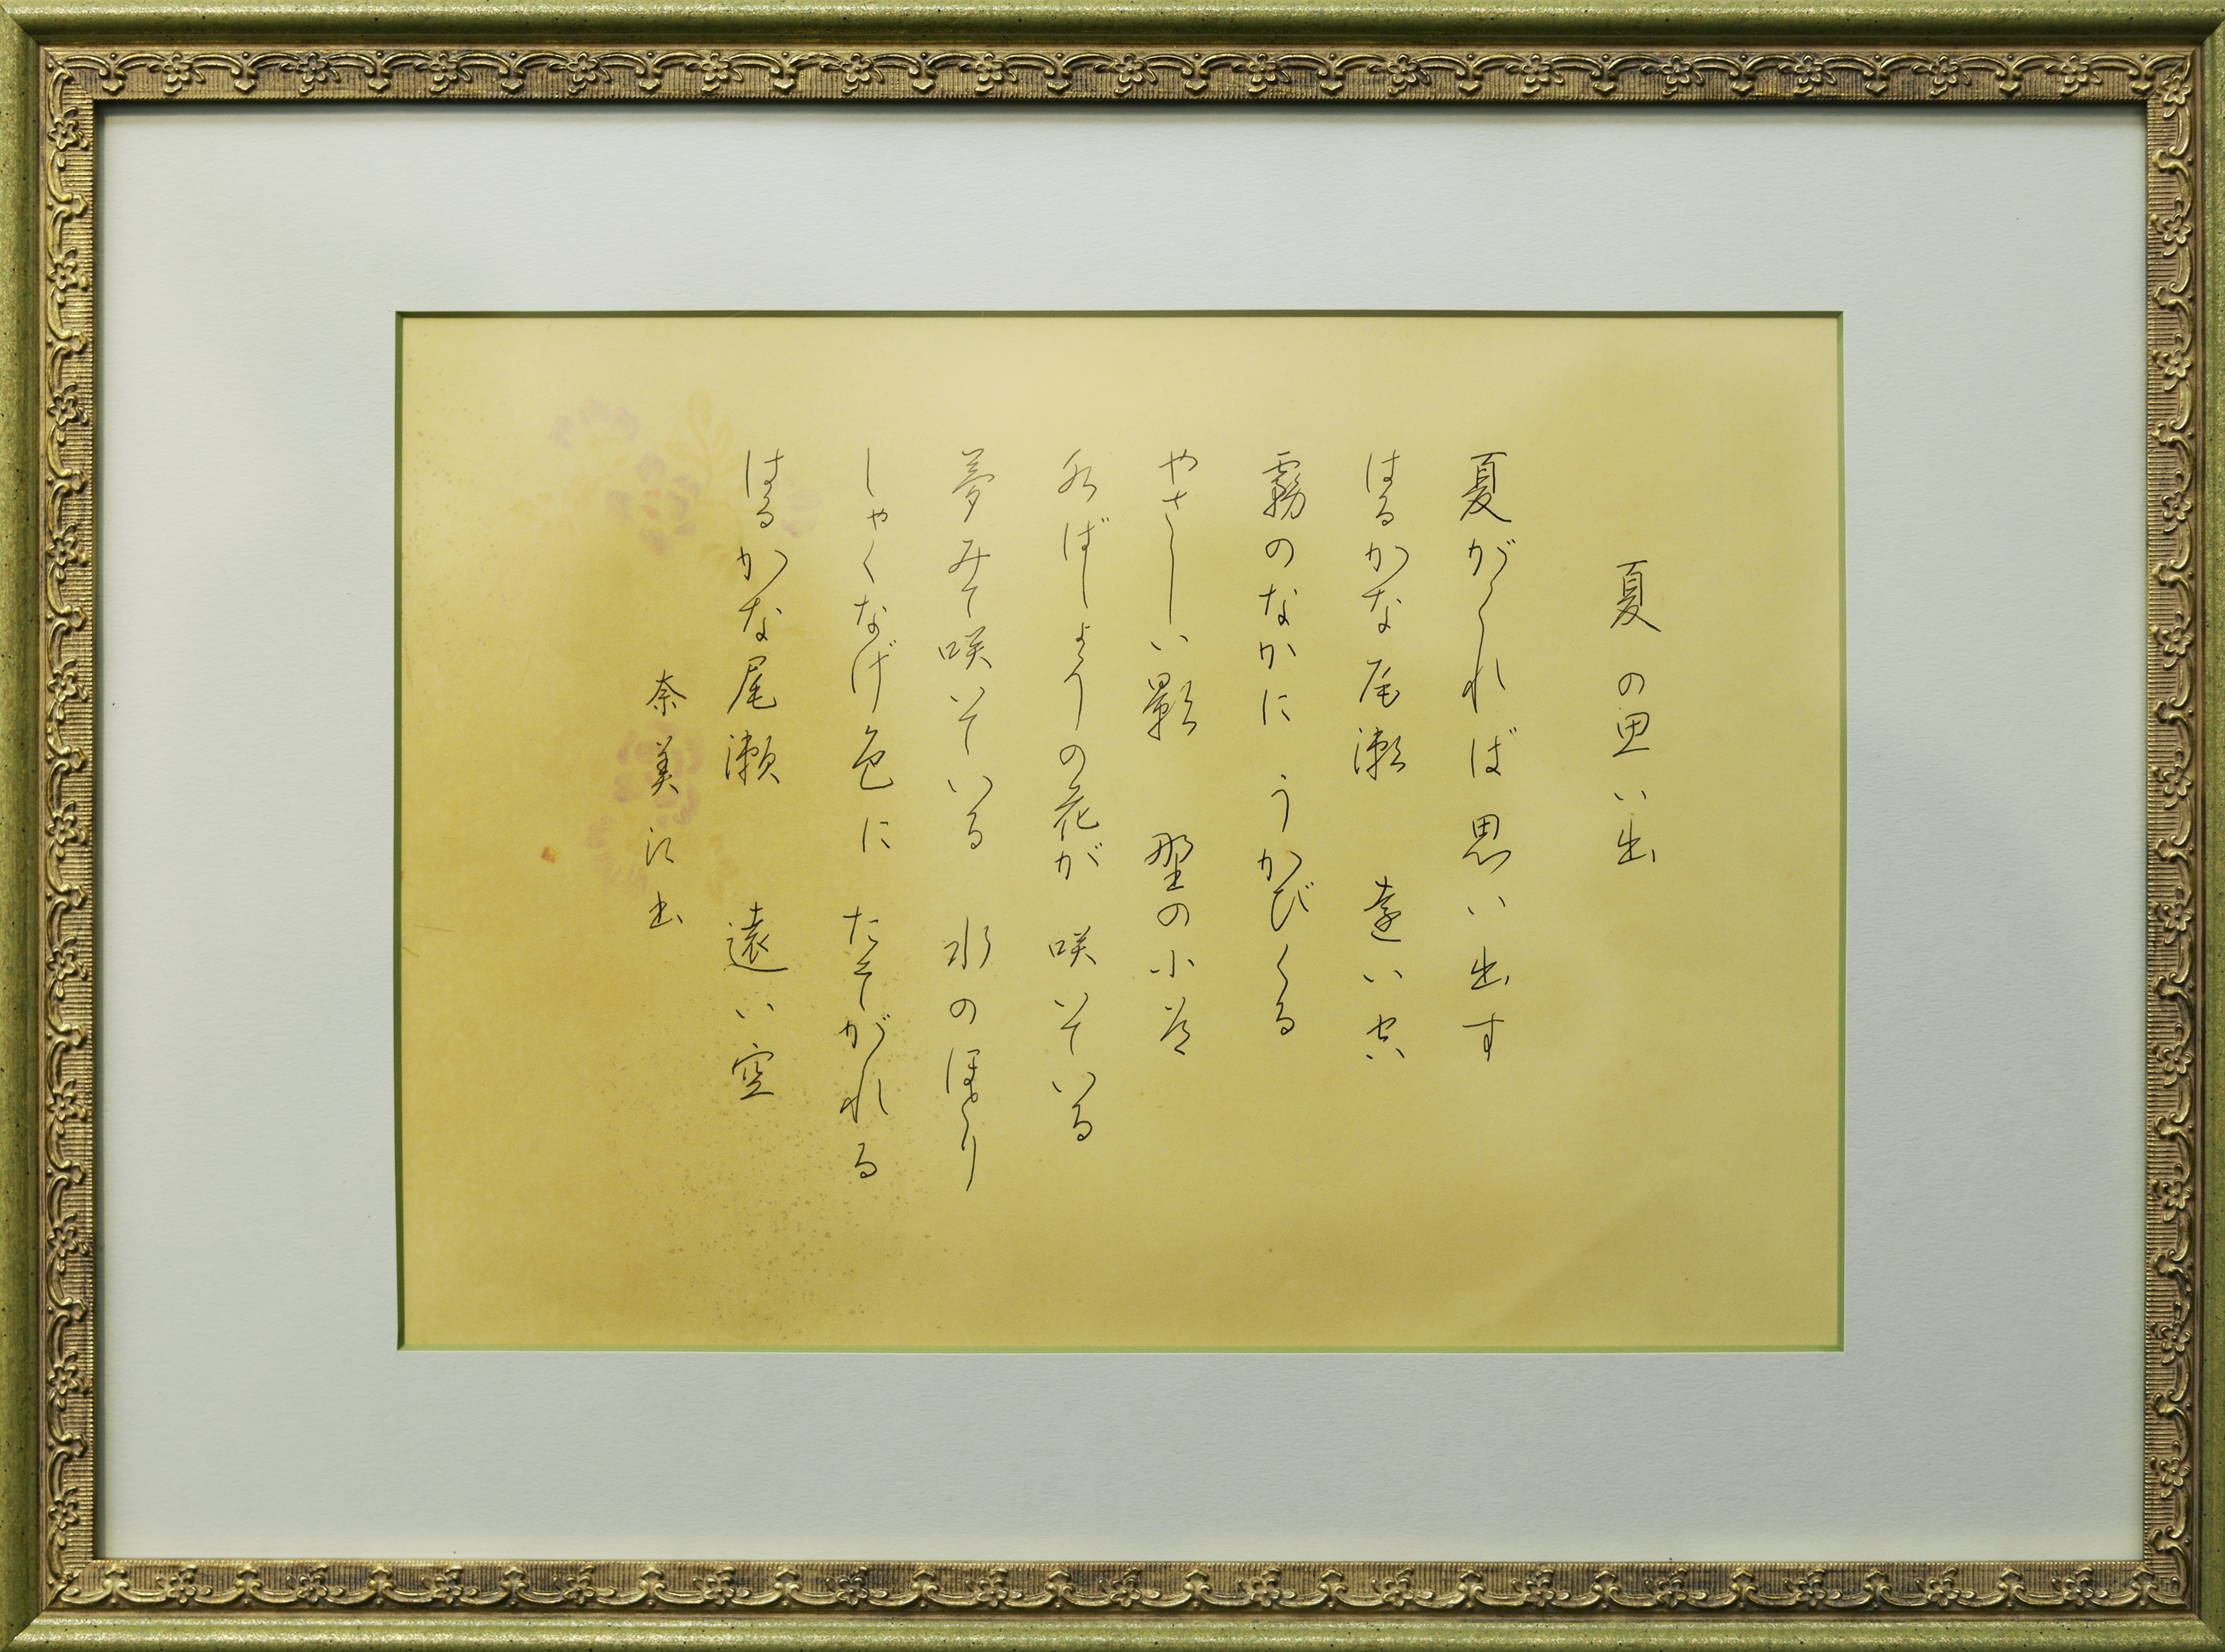 夏の思い出
夏がくれば思い出す
はるかな尾瀬　遠い空
霧のなかに　うかびくる
やさしい影　野の小道
水ばしょうの花が　咲いている
夢みて咲いている　水のほとり
しゃくなげ色に　たそがれる
はるかな尾瀬　遠い空
奈美江書